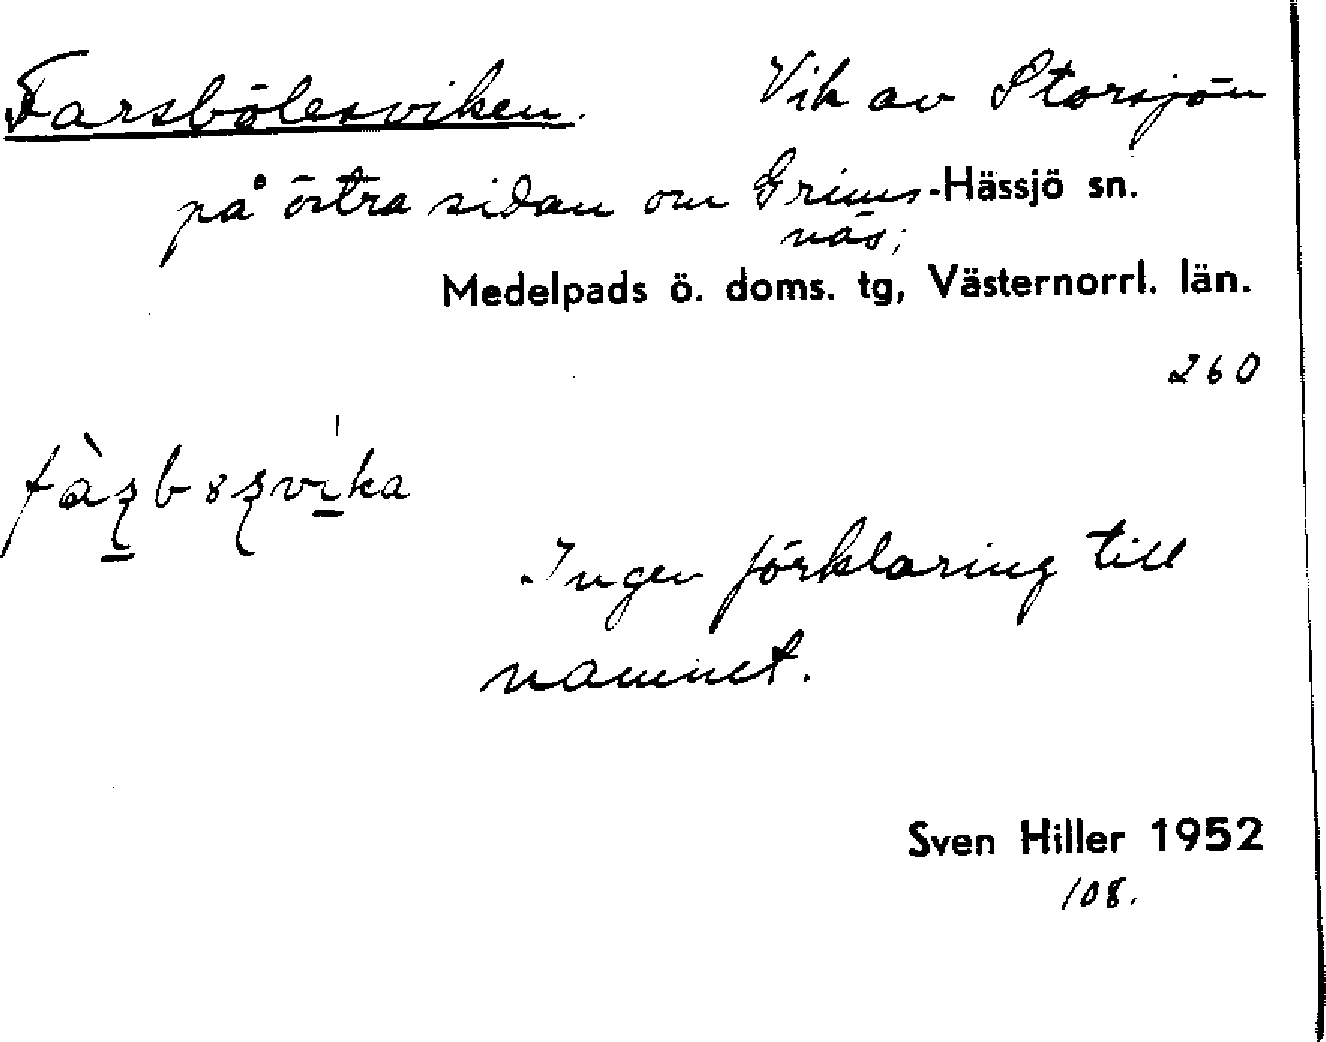 Farsbölesviken. Vik av Storsjön
på östra sidan om Grims-Hässjö sn.
näs;
Medelpads ö. doms. tg, Västernorrl. län.
260
Ingen förklaring till
namnet.
Sven Hiller 1952
108.